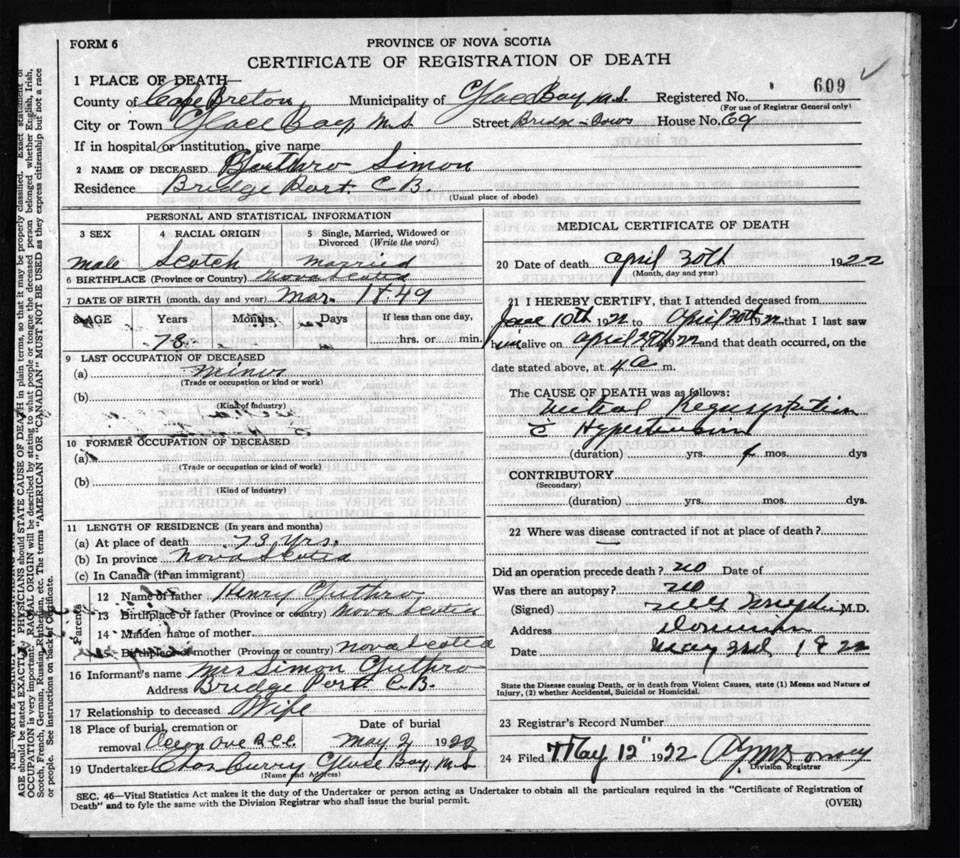 FORM 6
PROVINCE OF NOVA SCOTIA
CERTIFICATE OF REGISTRATION OF DEATH
1 PLACE OF DEATH—
609
County of Cape Breton Municipality of Glace Bay N.S. Registered No.
(For use of Registrar General only)
City or Town Glace Bay N.S. Street Bridge House No. 69
If in hospital or institution, give name
2 NAME OF DECEASED Guthro Simon
Residence Bridge Port. C B.
(Usual place of abode)
PERSONAL AND STATISTICAL INFORMATION
3 SEX 4 RACIAL ORIGIN 5 Single, Married, Widowed or Divorced (Write the word)
Male Scotch Married
6 BIRTHPLACE (Province or Country) Nova Scotia
7 DATE OF BIRTH (month, day and year) Mar. 1849
8 AGE Years Months Days If less than one day,
73 hrs. or min.
9 LAST OCCUPATION OF DECEASED
(a) Miner
(Trade or occupation or kind or work)
(b)
(Kind of industry)
10 FORMER OCCUPATION OF DECEASED
(a)
(Trade or occupation or kind of work)
(b)
(Kind of industry)
11 LENGTH OF RESIDENCE (In years and months)
(a) At place of death 73 yrs.
(b) In province Nova Scotia
(c) In Canada (if an immigrant)
Parents
12 Name of father Henry Guthro
13 Birthplace of father (Province or country) Nova Scotia
14 Maiden name of mother
15 Birthplace of mother (Province or country) Nova Scotia
16 Informant's name Mrs Simon Guthro
Address Bridge Port. C.B.
17 Relationship to deceased Wife
18 Place of burial, cremation or removal Date of burial
May 2 1922
19 Undertaker Chas Curry Glace Bay, N.S.
(Name and Address)
MEDICAL CERTIFICATE OF DEATH
20 Date of death April 30th 1922
(Month, day and year)
21 I HEREBY CERTIFY, that I attended deceased from
10th 1922 to April 30th 1922 that I last saw
him alive on April 1922 and that death occurred, on the
date stated above, at 4 a m.
The CAUSE OF DEATH was as follows:
Mitral Regurgitation
c̄ Hypertension
(duration) yrs. mos. dys
CONTRIBUTORY
(Secondary)
(duration) yrs. mos. dys.
22 Where was disease contracted if not at place of death?
Did an operation precede death? no Date of
Was there an autopsy? no
(Signed) M.D.
Address Dominion
Date May 2nd 1922
State the Disease causing Death, or in death from Violent Causes, state (1) Means and Nature of
Injury, (2) whether Accidental, Suicidal or Homicidal.
23 Registrar's Record Number
24 Filed May 12" 1922
Division Registrar
SEC. 46—Vital Statistics Act makes it the duty of the Undertaker or person acting as Undertaker to obtain all the particulars required in the "Certificate of Registration of
Death" and to fyle the same with the Division Registrar who shall issue the burial permit.
(OVER)
AGE should be stated EXACTLY. PHYSICIANS should STATE CAUSE OF DEATH in plain terms, so that it may be properly classified. Exact statement of
OCCUPATION is very important. RACIAL ORIGIN will be described by stating to what people or tongue the deceased person belonged whether English, Irish,
Scotch, French, German, Russian, Ruthenian, etc. The terms "AMERICAN" OR "CANADIAN" MUST NOT BE USED as they express citizenship but not a race
or people. See instructions on back of Certificate.